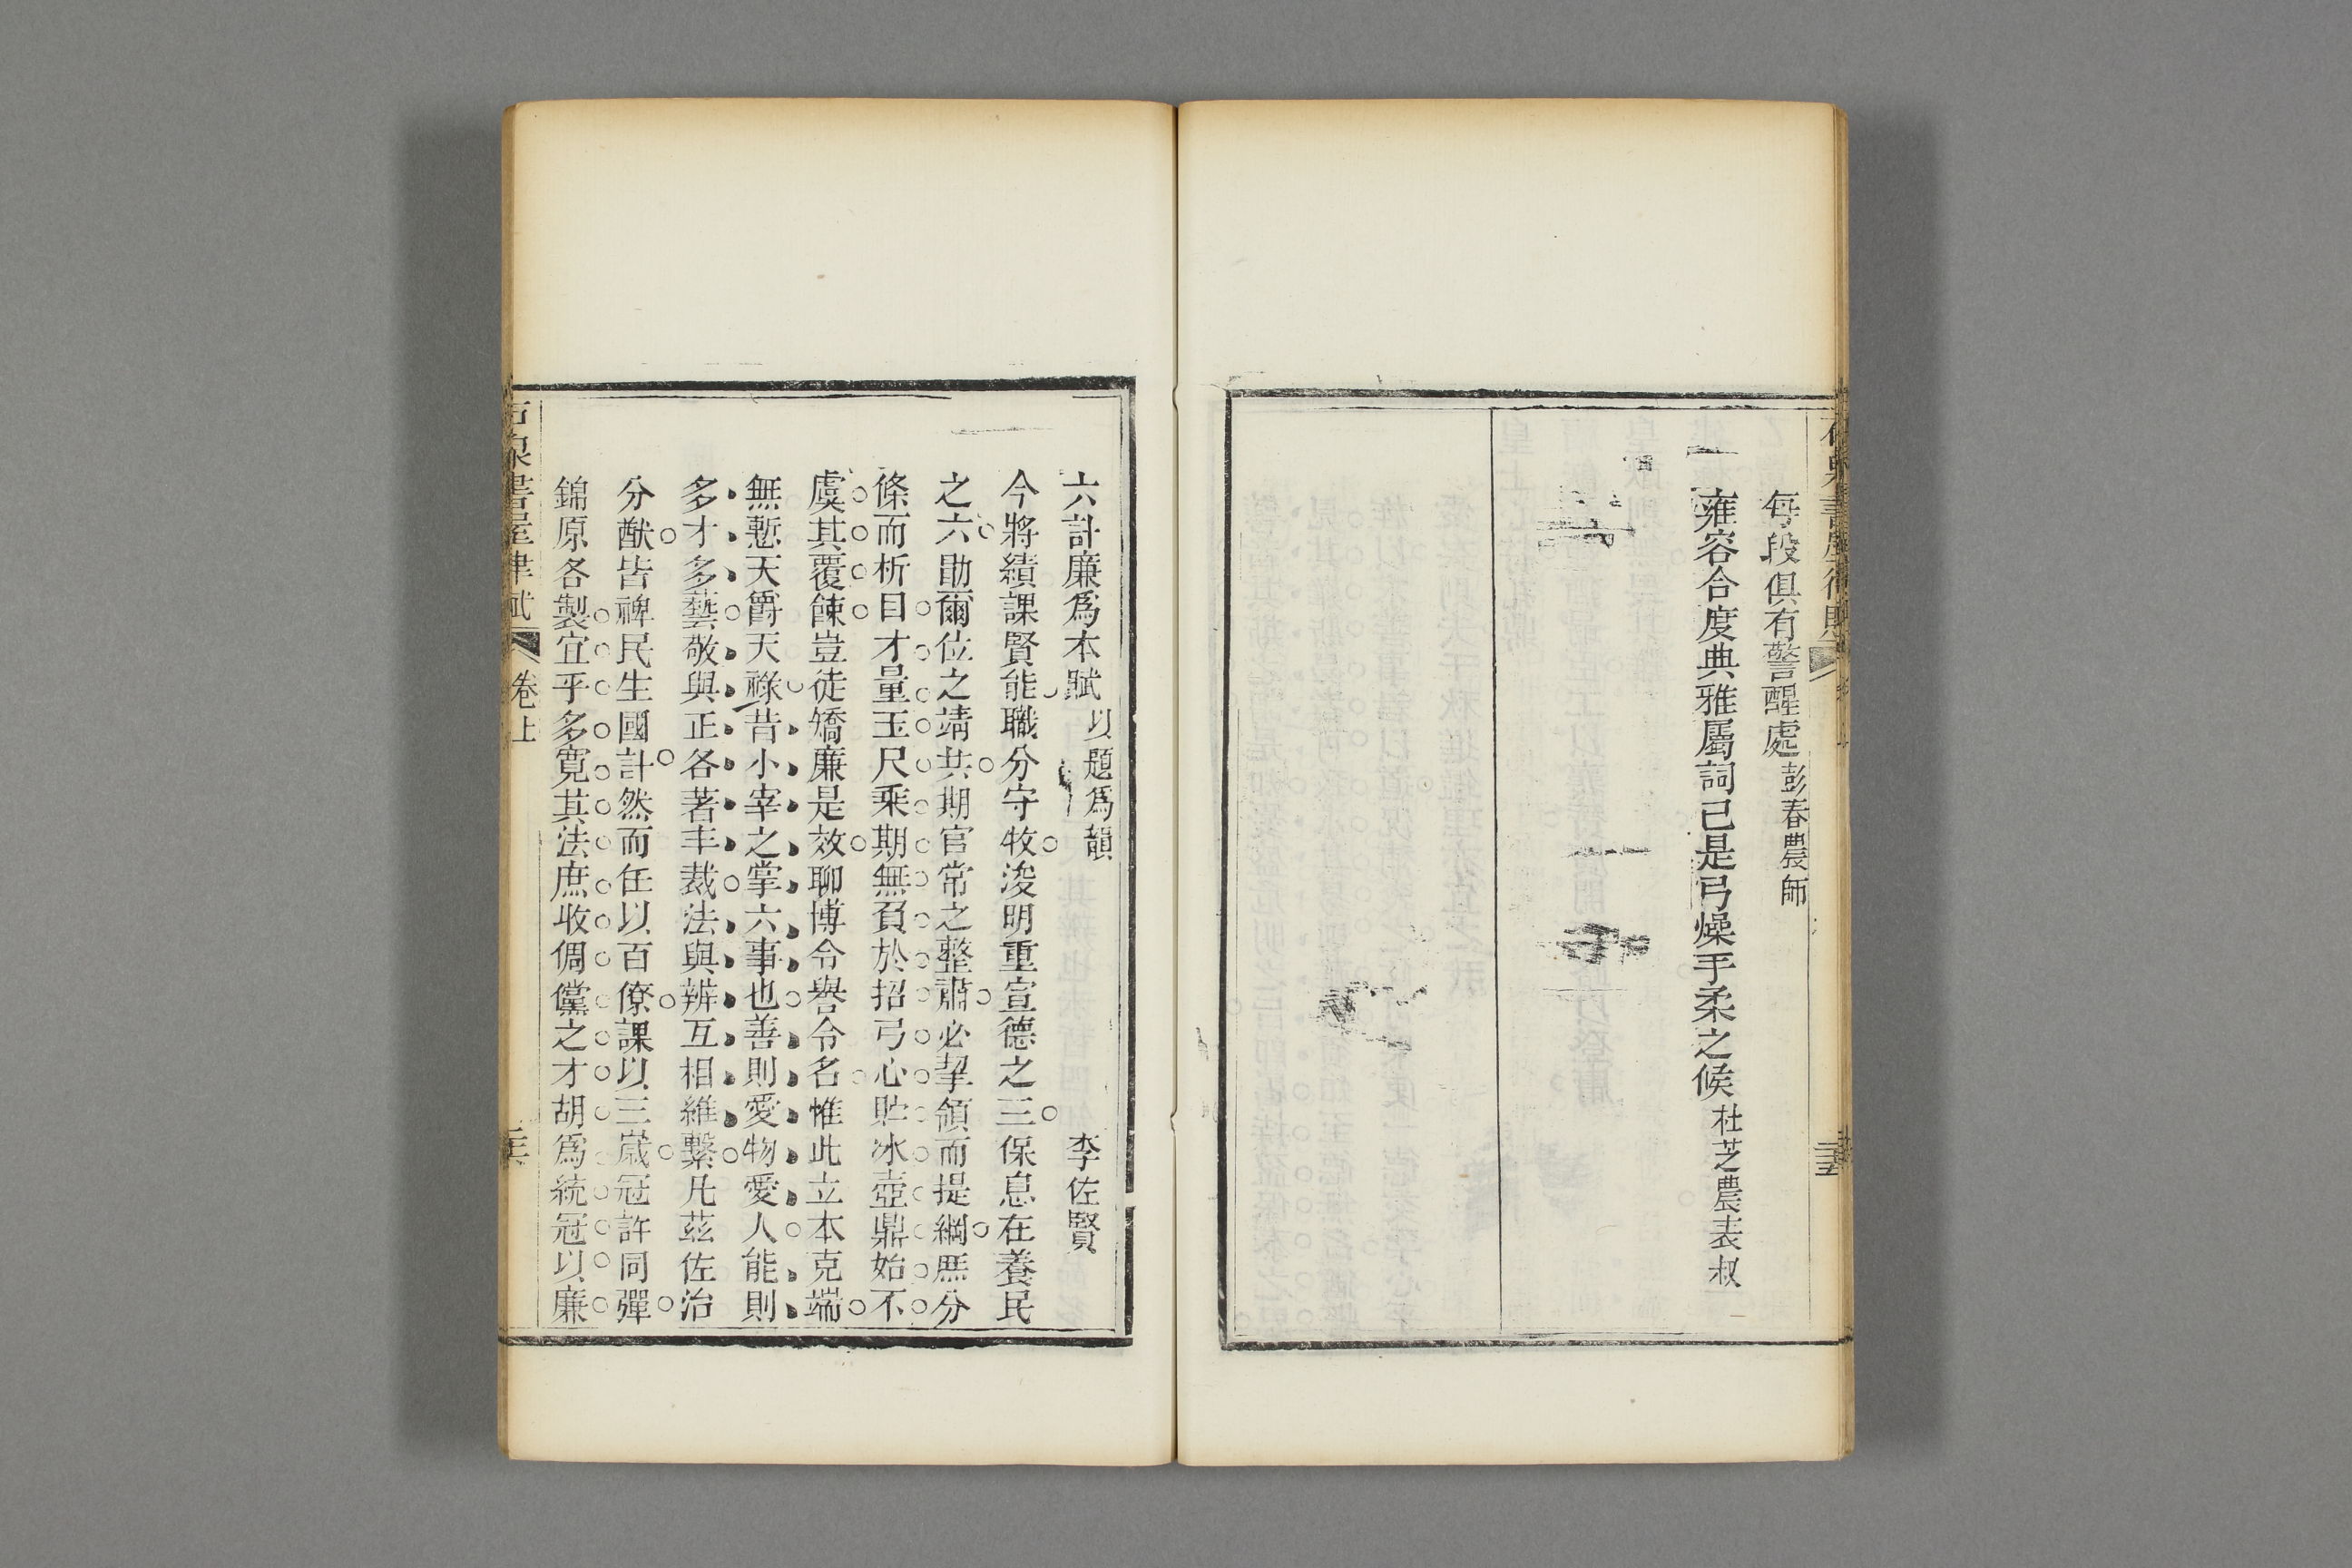 每段俱有警醒處彭春農師
雍容合度典雅屬詞已是弓燥手柔之候杜芝農表叔
六計廉爲本賦以題爲韻 李佐賢
今將績課賢能職分守牧浚明重宣德之三保息在養民
之六勖爾位之靖共期官常之整肅必挈領而提綱庶分
條而析目才量玉尺乘期無負於招弓心貯冰壺鼎始不
虞其覆餗豈徒矯廉是效聊博令譽令名惟此立本克端
無慙天爵天祿昔小宰之掌六事也善則愛物愛人能則
多才多藝敬與正各著丰裁法與辨互相維繫凡茲佐治
分猷皆裨民生國計然而任以百僚課以三嵗冠許同彈
錦原各製宜乎多寛其法庶收倜儻之才胡爲統冠以廉
石泉書屋律賦 卷上 三六